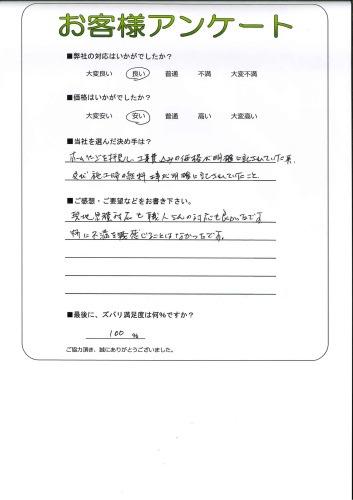 お客様アンケート
■弊社の対応はいかがでしたか?
大変良い 良い 普通 不満 大変不満
■価格はいかがでしたか?
大変安い 安い 普通 高い 大変高い
■当社を選んだ決め手は?
ホームページを拝見し、工事費込みの価格が明確に記されていた事。
施工時の無料 明確に記されていたこと。
■ご感想・ご要望などをお書き下さい。
現地見積対応も職人さんの対応も良かったです
特に不満を感じることはなかったです。
■最後に、ズバリ満足度は何%ですか?
100 %
ご協力頂き、誠にありがとうございました。